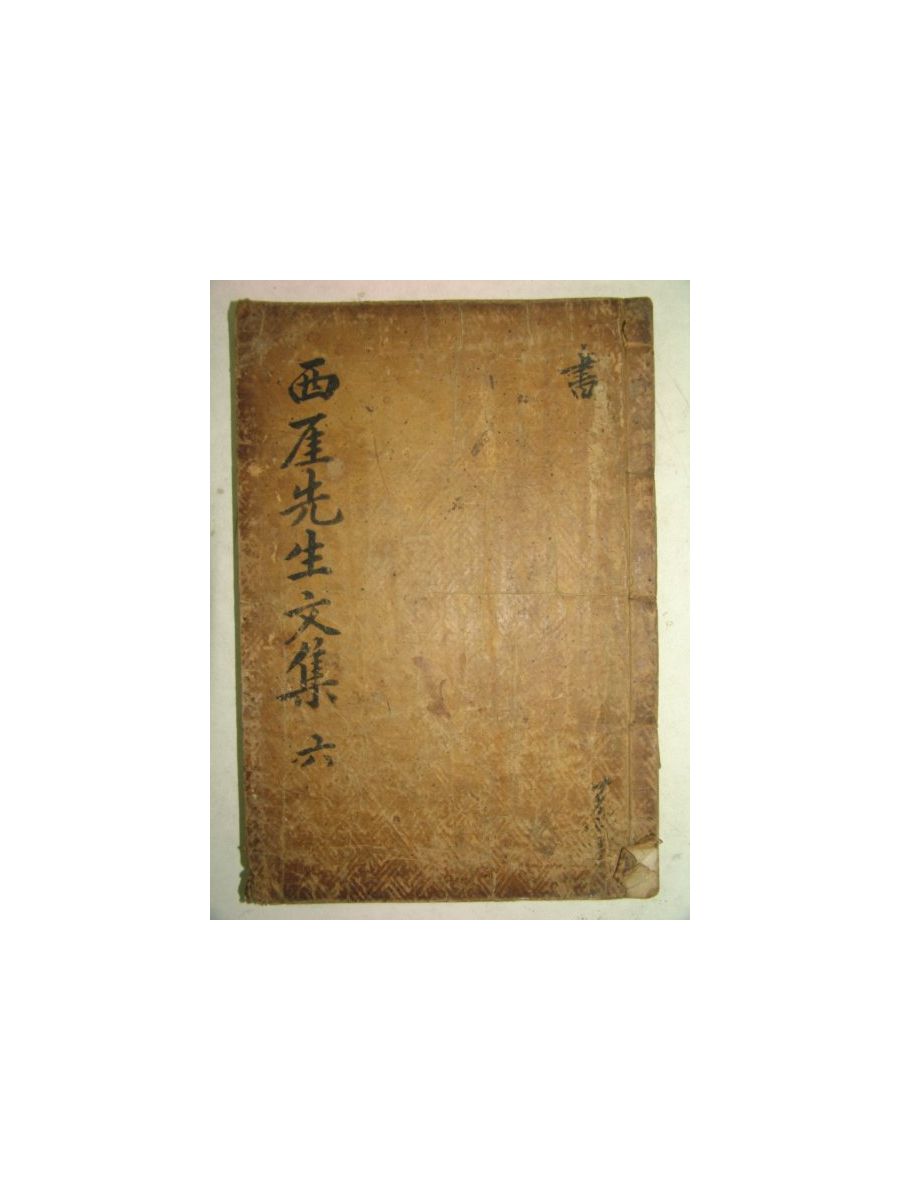 書
西厓先生文集 六